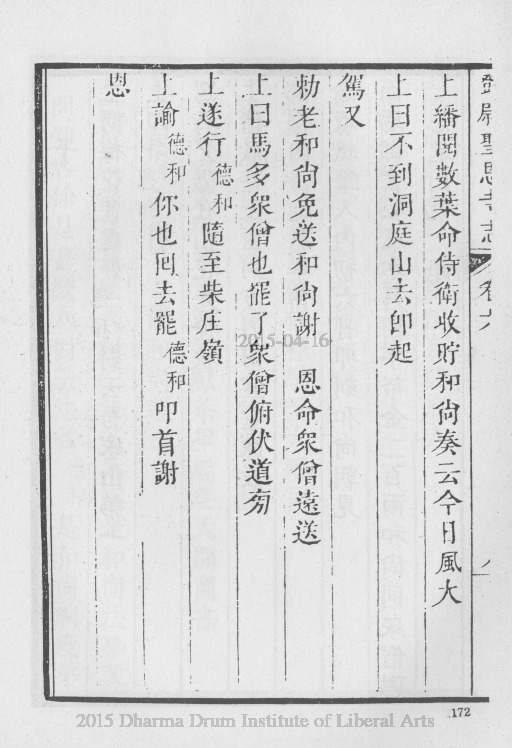 鄧尉聖恩寺志 卷六 八
上繙閱數葉命侍衛收貯和尙奏云今日風大
上曰不到洞庭山去卽起
駕又
勅老和尙免送和尙謝 恩命衆僧遠送
上曰馬多衆僧也罷了衆僧俯伏道旁
上遂行德和隨至柴庄嶺
上諭德和你也囘去罷德和叩首謝
恩
2015-04-16
172
2015 Dharma Drum Institute of Liberal Arts